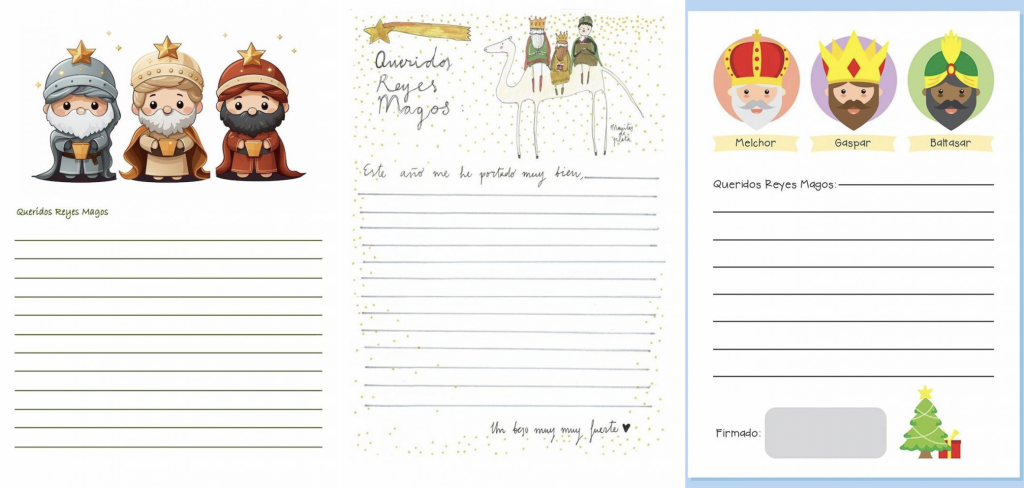 Queridos Reyes Magos
Queridos
Reyes
Magos
Este año me he portado muy bien,
Un beso muy muy fuerte
Melchor
Gaspar
Baltasar
Queridos Reyes Magos:
Firmado: